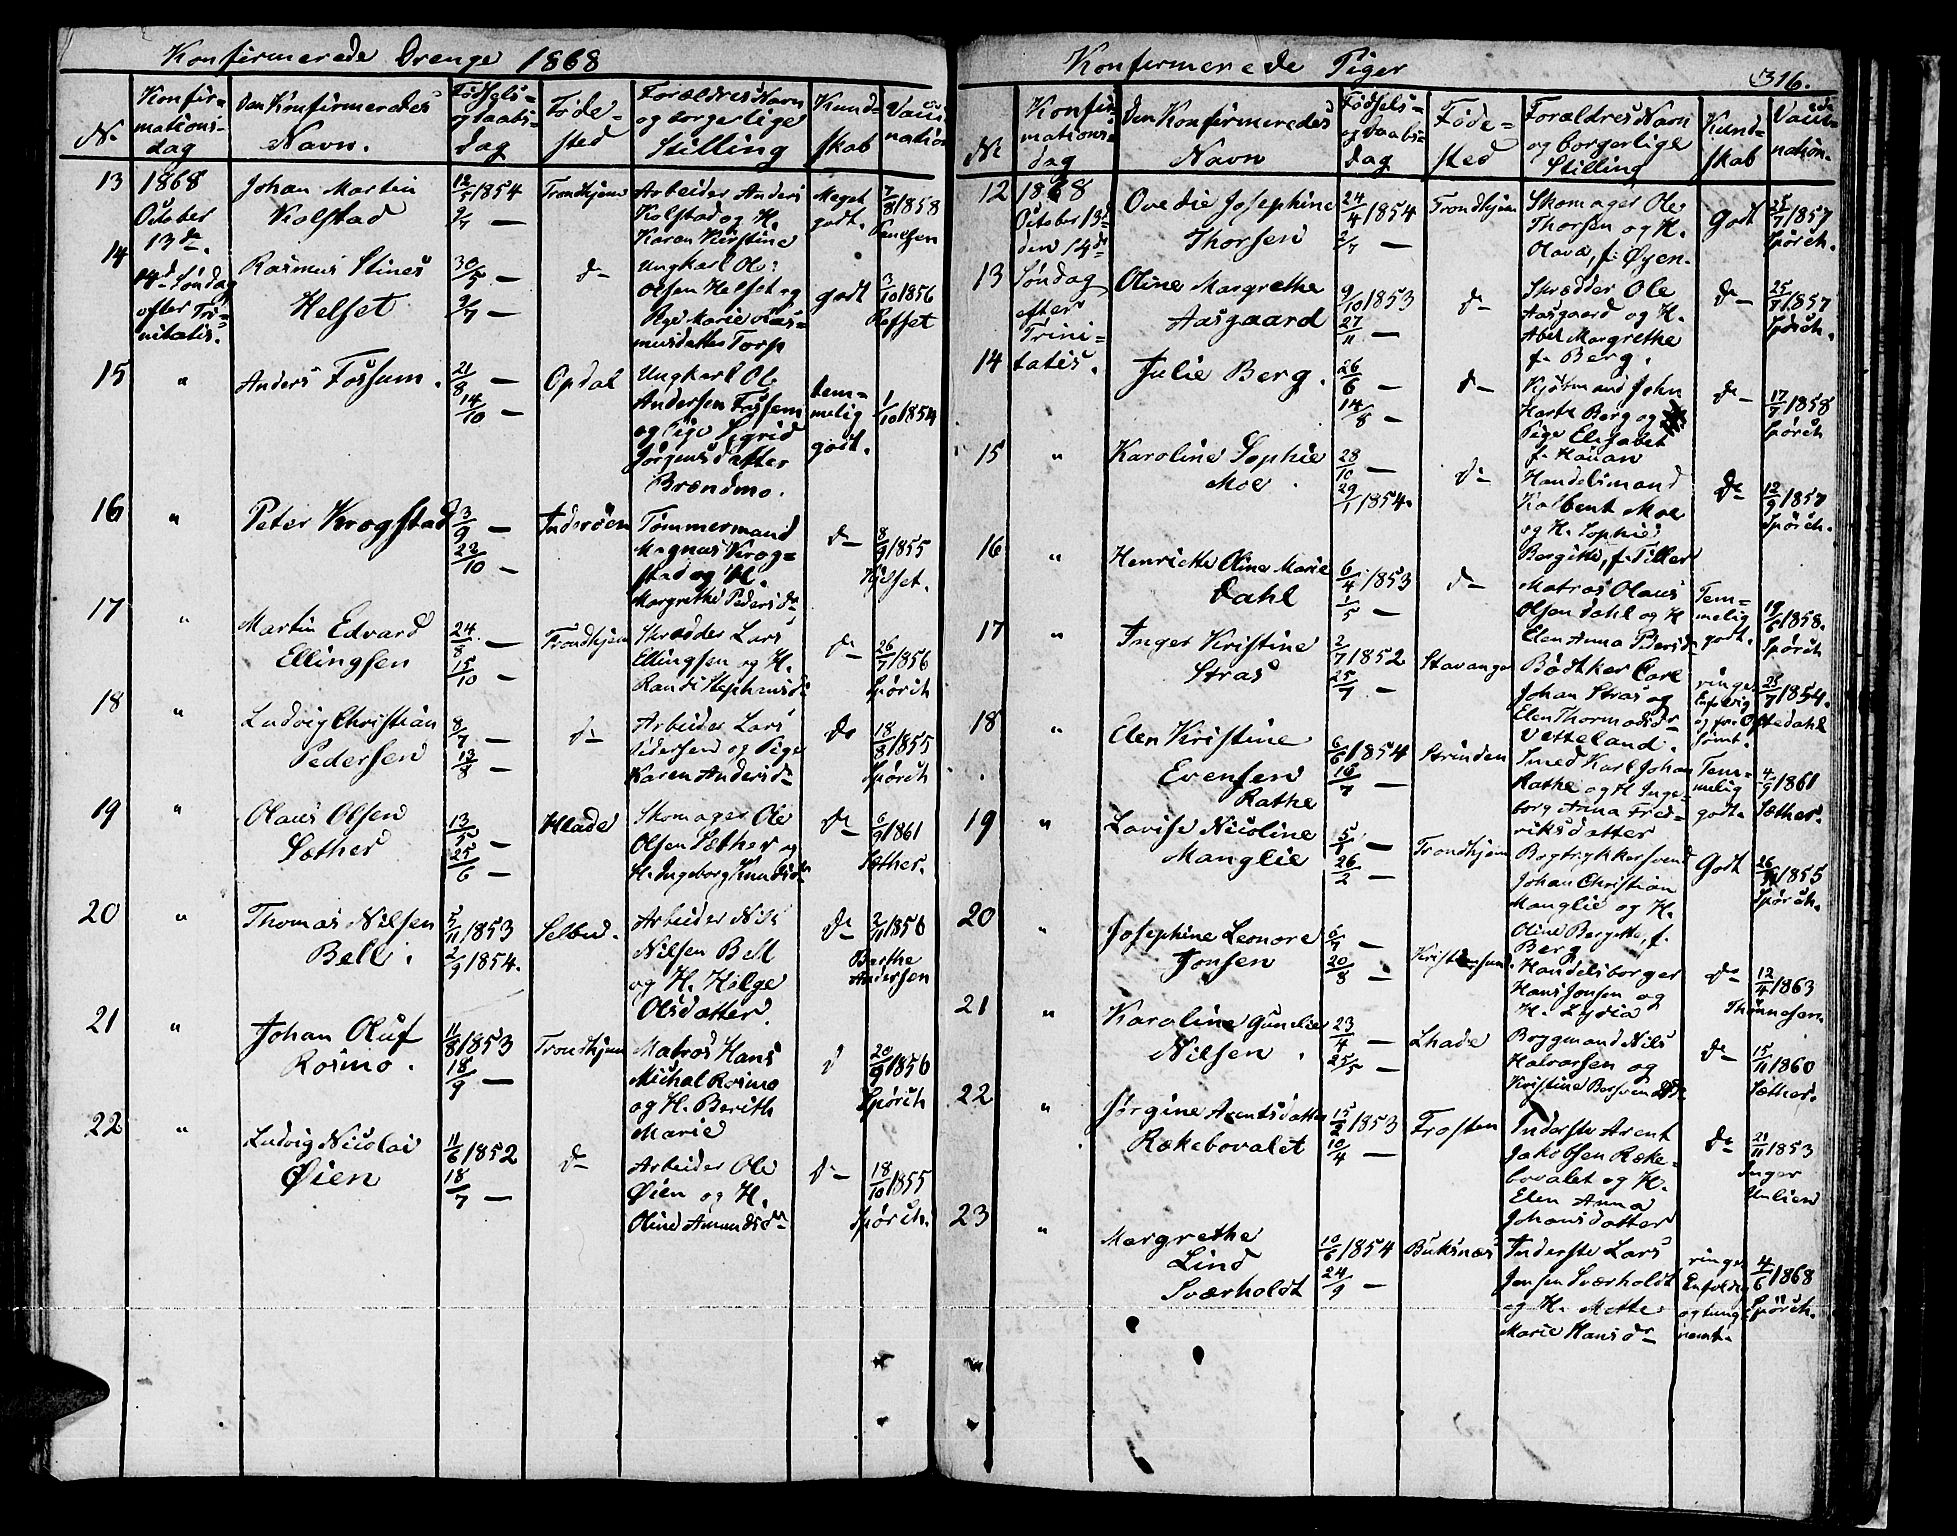 Konfirmerede Drenge 1868
No
Konfir-
mations-
dag
Den Konfirmeredes
Navn.
Fødsels-
og Daabs-
dag
Føde-
sted
Forældres Navn
og borgerlige
Stilling
Kund-
skab
Vacci
nation
13
1868
October
13de
14de Søndag
efter Tri-
nitatis.
Johan Martin
Kolstad
12/5 1854
2/7 —
Trondhjem
Arbeider Anders
Kolstad og H.
Karen Kirstine
Meget
godt.
7/8 1858
14
Rasmus Stines
Helset
30/5 —
2/7 —
do
Ungkarl Ole
Olsen Helset og
Pige Marie Ras-
musdatter Torp
godt
3/10 1856
Refset
15
"
Anders Fossum.
21/8 —
14/10 —
Opdal
Ungkarl Ole
Andersen Fossem
og Pige Sigrid
Jørgensdatter
Brændmo.
tem-
melig
godt.
1/10 1854
16
"
Peter Krogstad
3/9 —
22/10 —
Inderøen
Tømmermand
Magnus Krog-
stad og H.
Margrethe Pedersdr
do
8/9 1855
Hjelset.
17
"
Martin Edvard
Ellingsen
24/8 —
15/10 —
Trondhjem
Skrædder Lars
Ellingsen og H.
Randi Stephensdr
do
26/7 1856
Spørch
18
"
Ludvig Christian
Pedersen
8/7 —
13/8 —
do
Arbeider Lars
Pedersen og Pige
Karen Andersdr
do
18/8 1855
Spørch
19
"
Olaus Olsen
Sæther
13/5 —
25/6 —
Hlade
Skomager Ole
Olsen Sæther og
H. Ingeborg Knudsdr
do
6/9 1861
Sæther.
20
"
Thomas Nilsen
Bell.
5/11 1853
2/9 1854.
Selbu.
Arbeider Nils
Nilsen Bell
og H. Helge
Olsdatter.
do
2/11 1856
Berthe
Andersen
21
"
Johan Oluf
Rosmo.
11/8 1853
18/9 —
Trondhjem
Matros Hans
Michal Rosmo
og H. Berith
Marie
d
20/9 1856
Spørch
22
"
Ludvig Nicolai
Øien
11/6 1852
18/7 —
do
Arbeider Ole
Øien og H.
Oline Amundsdr
do
18/10 1855
Spørch.
Konfirmerede Piger
316.
No
Konfir-
mations-
dag
Den Konfirmeredes
Navn
Fødsels-
og Daabs-
dag
Føde-
sted
Forældres Navn
og borgerlige
Stilling
Kund-
skab
Vacci-
nation.
12
1868
October 13de
den 14de
Søndag
efter
Trini-
tatis.
Ovedie Josephine
Thorsen
24/4 1854
2/7 —
Trondhjem
Skomager Ole
Thorsen og H.
Olava, f. Øyen.
Godt
25/7 1857
Spørch.
13
Oline Margrethe
Aasgaard
9/10 1853
27/11 —
do
Skrædder Ole
Aasgaard og H.
Abel Margrethe
f. Berg.
do
25/7 1857
Spørch.
14
Julie Berg.
26/6 —
14/8 —
do
Kjøbmand John
Hartv. Berg og
Pige Elisabet
f. Hauan
do
17/7 1858
Spørch
15
"
Karoline Sophie
Moe.
28/10 —
29/1 1854.
do
Handelsmand
Kolbent Moe
og H. Sophie
Bergitte, f. Tiller
do
12/9 1857
Spørch.
16
"
Henriette Oline Marie
Dahl
6/4 1853
1/5 —
do
Matros Olaus
Olsen Dahl og H
Elen Anna Pedersdr
Tem-
melig
godt.
19/6 1858.
Spørch
17
"
Inger Kristine
Stras
2/7 1852
25/7 —
Stavanger
Bødtker Carl
Johan Stras og
Elen Thormodsdr
Vetteland.
ringe
25/7 1854.
Oftedahl
18
"
Elen Kristine
Evensen
Rathe
6/6 1854
16/7 —
Strinden
Smed Karl Johan
Rathe og H Inge-
borg Anna Fred-
riksdatter
Tem-
melig
godt.
4/9 1861
Sæther.
19
"
Lovise Nicoline
Manglie
5/1 —
26/2 —
Trondhjem
Bogtrykkersvend
Johan Christian
Manglie og H.
Oline Bergitte, f.
Berg.
Godt
1855
Spørch.
20
"
Josephine Leonore
Jonsen
6/7 —
20/8 —
Kristiansund.
Handelsborger
Hans Jonsen og
H. Lydia
do
12/4 1863
Thønnesen.
21
"
Karoline Gunelie
Nilsen.
23/4 —
25/5 —
Lhade
Byggmand Nils
Halvorsen og
Kristine
do
15/11 1860
Sæther.
22
"
Jørgine Arntsdatter
Rækebovalet
15/2 1853
10/4 —
Frosten
Inderste Arent
Jakobsen Ræke-
bovalet og H.
Elen Anna
Johansdatter
do
21/11 1853
Inger
Unlien
23
"
Margrethe
Lind
Sværholdt
10/6 1854
24/9 —
Buksnæs
Inderste Lars
Jensen Sværholdt
og H. Mette
Marie Hansdr
ringe,
Enfoldig
og tung-
nemt.
4/6 1868
Spørch.